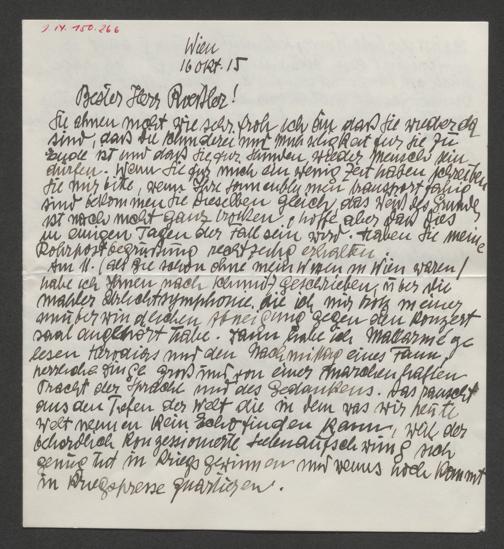 J.N. 150.266
Wien
16 Okt. 15
Bester Herr Roessler!
Sie ahnen nicht wie sehr froh ich bin daß Sie wieder da
sind, daß die Schinderei und Mühseligkeit für Sie zu
Ende ist und daß Sie zur Stunden wieder Mensch sein
dürfen. Wenn Sie für mich ein wenig Zeit haben schreiben
Sie mir bitte, wenn Ihre Sonnenblumen transportfähig
sind bekommen Sie dieselben gleich, das Weiß des Grundes
ist noch nicht ganz trocken, hoffe aber daß dies
in einigen Tagen der Fall sein wird. Haben Sie meine
Rohrpostbegrüßung rechtzeitig erhalten
Am 11. (als Sie schon ohne mein Wissen in Wien waren)
habe ich Ihnen nach geschrieben, über die
Mahler symphonie, die ich mir trotz meiner
unüberwindlichen Abneigung gegen den Konzert
saal angehört habe. Dann habe ich Mallarmé ge
lesen Herodias und den Nachmittag eines Faun,
herrliche Dinge groß und von einer märchenhaften
Pracht der Sprache und des Gedankens. Das rauscht
aus den Tiefen der Welt die in dem was wir heute
Welt nennen kein Echo finden kann, weil der
behördlich konzessionierte Seelenaufschwung sich
genug tut in Kriegsgewinnen und wenns noch kommt
in Kriegspressequartieren.